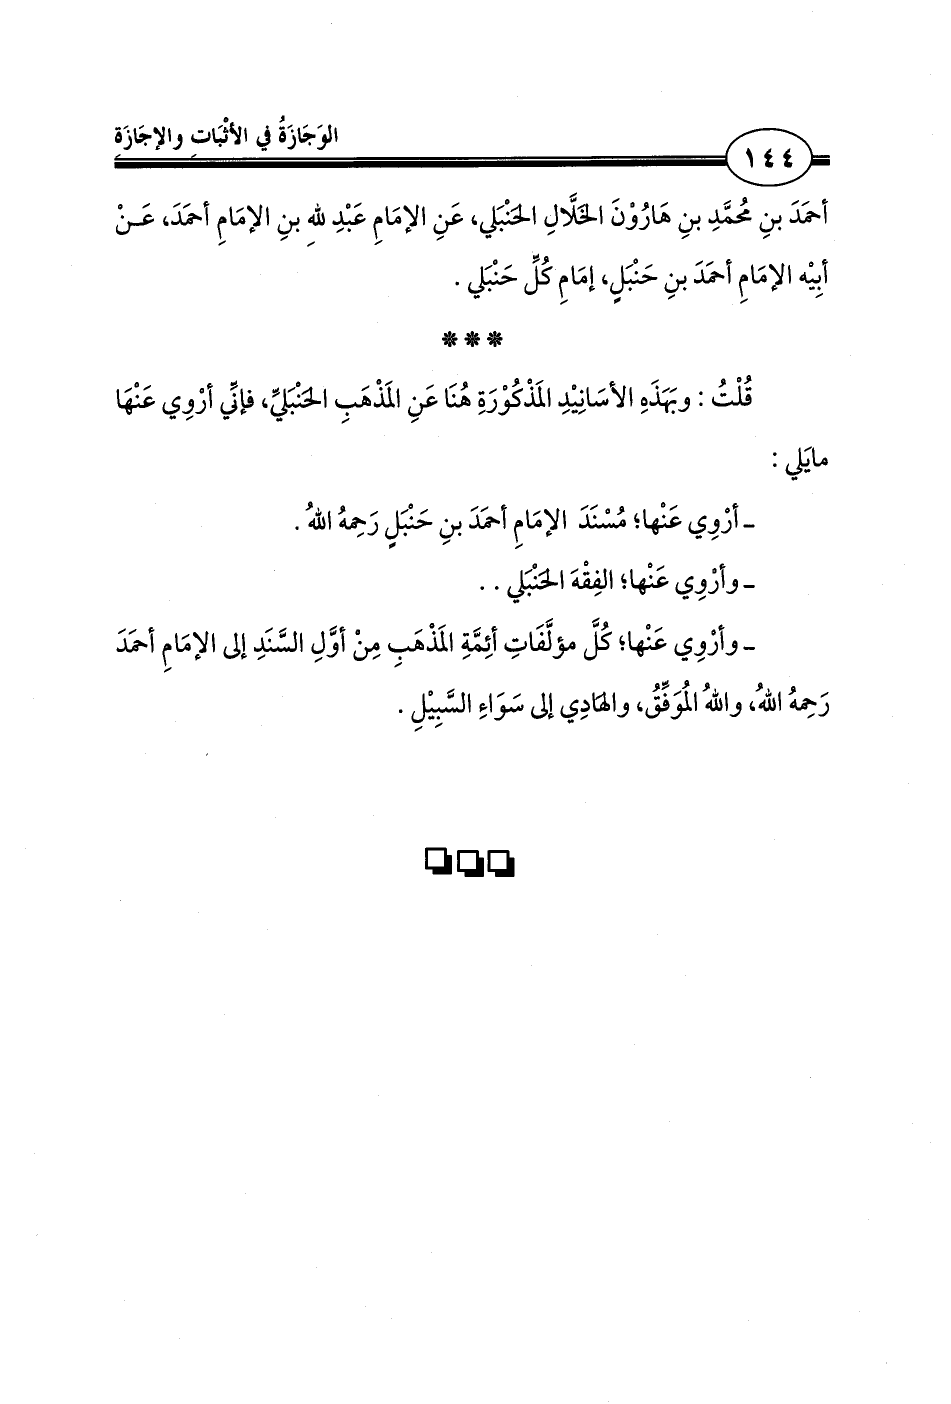 الوَجَازَةُ في الأثْبَاتِ والإجَازَةِ
١٤٤
أحمَدَ بنِ محُمَّدِ بنِ هَارُوْنَ الخَلَّالِ الحَنْبَلي، عَنِ الإمَامِ عَبْدِ للهِ بنِ الإمَامِ أحمَدَ، عَـنْ
أبِيْه الإمَامِ أحمَدَ بنِ حَنْبَلٍ، إمَامِ كُلِّ حَنْبَلي .
* * *
قُلْتُ : وبهَذَهِ الأسَانِيْدِ المَذْكُوْرَةِ هُنَا عَنِ المَذْهَبِ الحَنْبَليِّ، فإنِّي أرْوِي عَنْهَا
مايَلي :
ـ أرْوِي عَنْها؛ مُسْنَدَ الإمَامِ أحمَدَ بنِ حَنْبَلٍ رَحِمهُ اللهُ .
ـ وأرْوِي عَنْها؛ الفِقْهَ الحَنْبَلي . .
ـ وأرْوِي عَنْها؛ كُلَّ مؤلَّفَاتِ أئِمَّةِ المَذْهَبِ مِنْ أوَّلِ السَّنَدِ إلى الإمَامِ أحمَدَ
رَحِمهُ اللهُ، واللهُ المُوَفِّقُ، والهَادِي إلى سَوَاءِ السَّبِيْلِ .